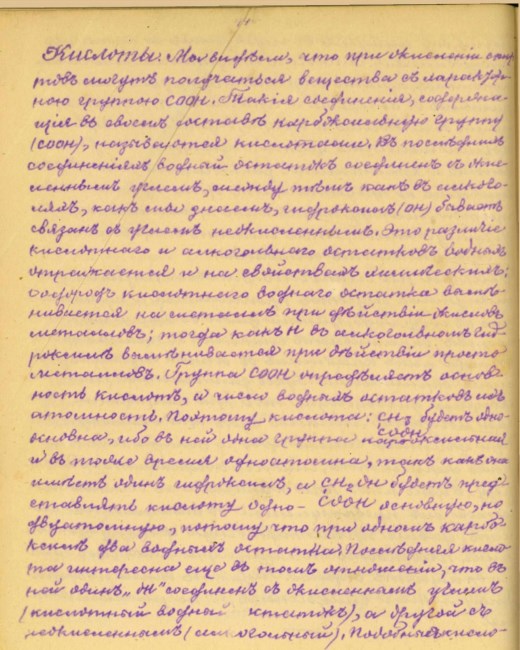 Кислоты. Мы видѣли, что при окисленіи спир-
товъ могутъ получаться вещества съ характер-
ною группою COOH. Такія соединенія, содержа-
щія въ своемъ составѣ карбоксильную группу
(COOH), называются кислотами. Въ послѣднихъ
соединеніяхъ водный остатокъ соединенъ съ окис-
леннымъ углемъ, между тѣмъ какъ въ алкого-
ляхъ, какъ мы знаемъ, гидроксилъ (OH) бываетъ
связанъ съ углемъ неокисленнымъ. Это различіе
кислотнаго и алкогольнаго остатковъ водныхъ
отражается и на свойствахъ химическихъ:
водородъ кислотнаго воднаго остатка вымѣ-
нивается на металлъ при дѣйствіи окисловъ
металловъ; тогда какъ H въ алкогольномъ гид-
роксилѣ вымѣнивается при дѣйствіи просто
металловъ. Группа COOH опредѣляетъ основ-
ность кислотъ, а число водныхъ остатковъ ихъ
атомность. Поэтому кислота: CH₃ будетъ одно-
COOH
основна, ибо въ ней одна группа карбоксильная
и въ тоже время одноатомна, такъ какъ она
имѣетъ одинъ гидроксилъ, а CH₂OH будетъ пред-
ставлять кислоту одно- COOH основную, но
двухатомную, потому что при одномъ карбо-
ксилѣ два водныхъ остатка. Послѣдняя кисло-
та интересна еще въ томъ отношеніи, что въ
ней одинъ „OH“ соединенъ съ окисленнымъ углемъ
(кислотный водный остатокъ), а другой съ
неокисленнымъ (алкогольный). Подобныя кисло-